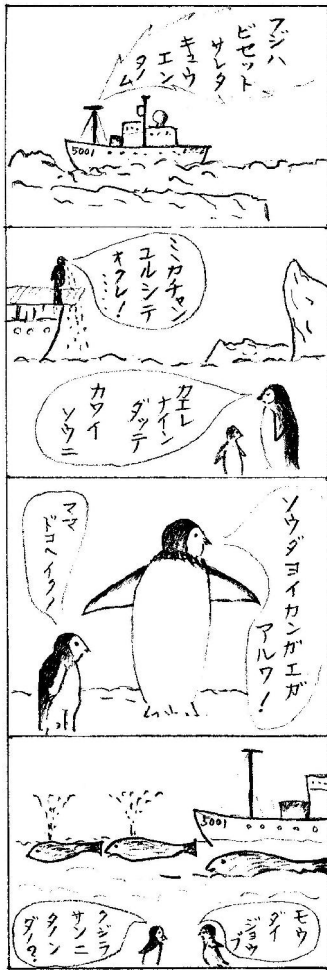 フジハ
ビセット
サレタ
キュウ
エン
タノ
ム
5001
ミカチャン
ユルシテ
オクレ!
カエレ
ナイン
ダッテ
カワイ
ソウニ
ソウダヨイカンガエガ
アルワ!
ママ
ドコヘイクノ
5001
モウ
ダイ
ジョウ
ブ
クジラ
サンニ
タノン
ダノ?